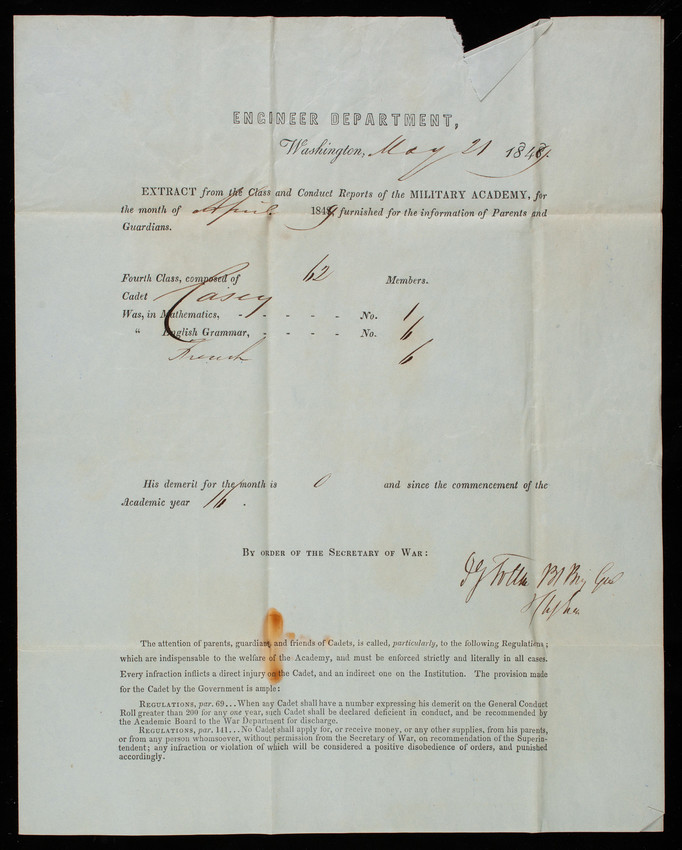 ENGINEER DEPARTMENT,
Washington, May 21 1849.
EXTRACT from the Class and Conduct Reports of the MILITARY ACADEMY, for
the month of April 1849, furnished for the information of Parents and
Guardians.
Fourth Class, composed of 62 Members.
Cadet Casey
Was, in Mathematics, - - - - - No. 1
“ English Grammar, - - - - No. 6
French 6
His demerit for the month is 0 and since the commencement of the
Academic year 16 .
BY ORDER OF THE SECRETARY OF WAR:
Bt Brig Gen
The attention of parents, guardians, and friends of Cadets, is called, particularly, to the following Regulations;
which are indispensable to the welfare of the Academy, and must be enforced strictly and literally in all cases.
Every infraction inflicts a direct injury on the Cadet, and an indirect one on the Institution. The provision made
for the Cadet by the Government is ample:
REGULATIONS, par. 69...When any Cadet shall have a number expressing his demerit on the General Conduct
Roll greater than 200 for any one year, such Cadet shall be declared deficient in conduct, and be recommended by
the Academic Board to the War Department for discharge.
REGULATIONS, par. 141...No Cadet shall apply for, or receive money, or any other supplies, from his parents,
or from any person whomsoever, without permission from the Secretary of War, on recommendation of the Superin-
tendent; any infraction or violation of which will be considered a positive disobedience of orders, and punished
accordingly.